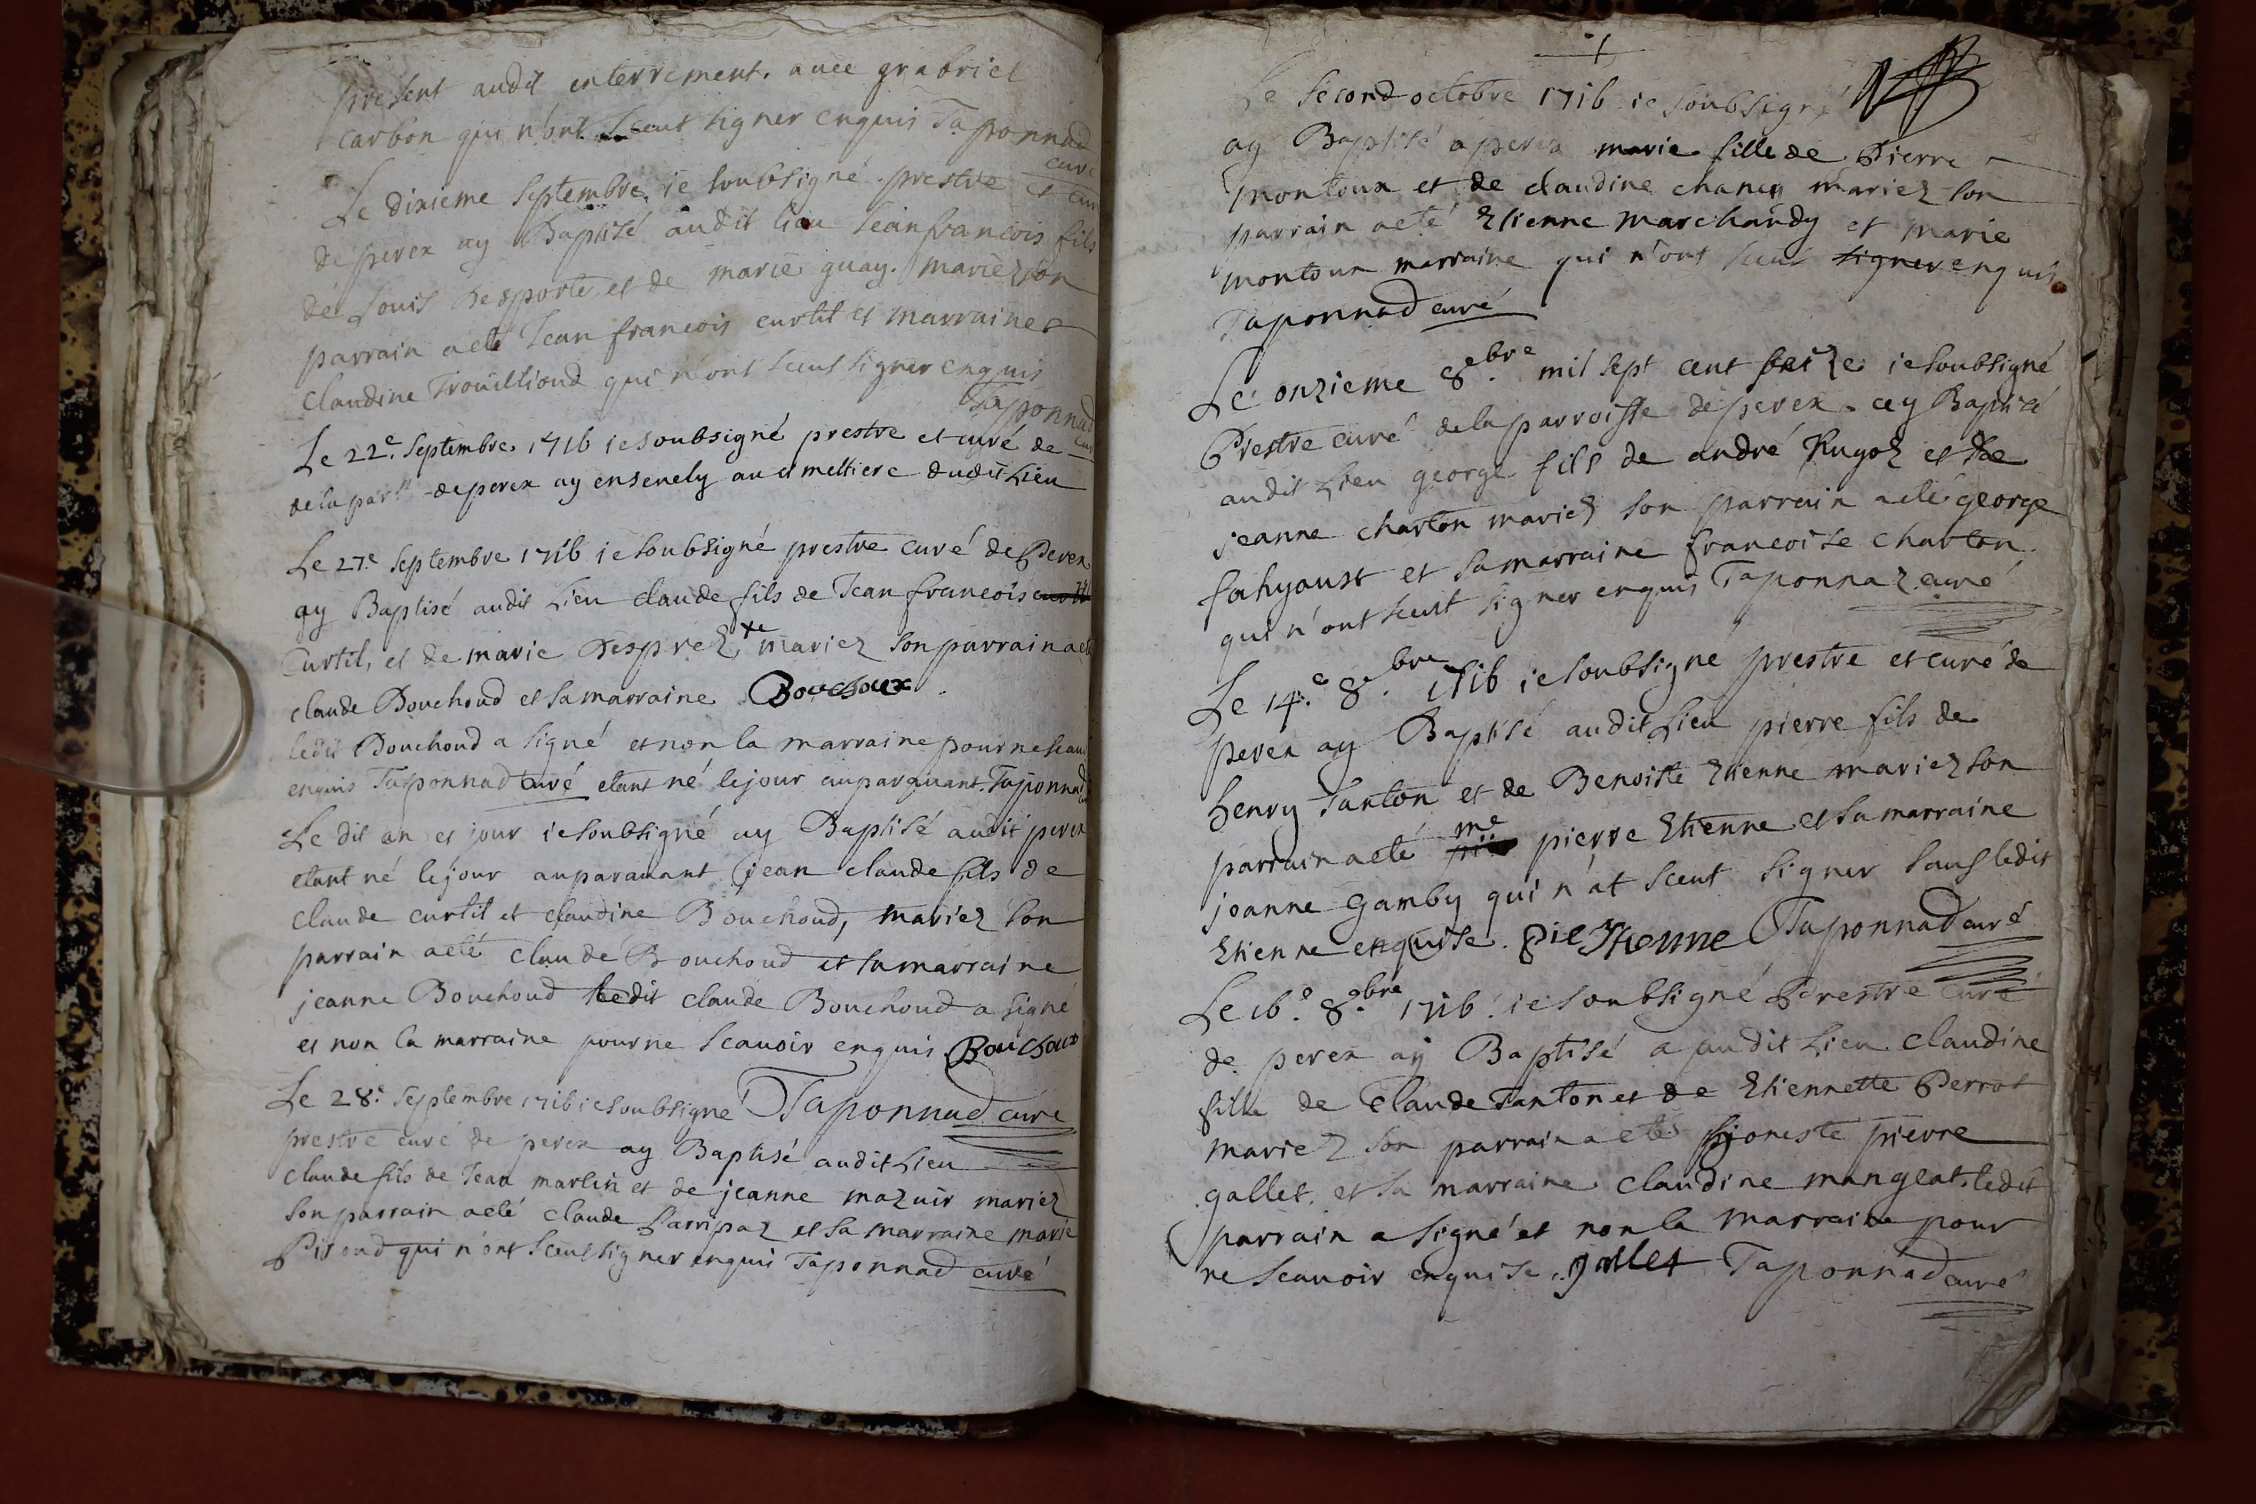 present audit enterrement. avec grabriel
carbon qui n'ont sceut signer enquis Taponnad
curé
Le dixieme Septembre. ie soubsigné prestre et curé
de perex ay Baptisé audit lieu Jeanfrancois fils
de Louis Desporte et de marie guay. mariez son
parrain aété Jean francois curtil et marraine
claudine Trouillioud qui n'ont sceut signer enquis
Taponnad
curé
Le 22e. Septembre. 1716 ie soubsigné prestre et curé de
de la parsse de perex ay ensevely au cimettiere dudit Lieu
Le 27e. Septembre 1716 ie soubsigné prestre curé de Perex
ay Baptisé audit Lieu claude fils de Jean francois
Curtil, et de marie Desprez mariez son parrain aété
claude Bouchoud et sa marraine Bouchoux
ledit Bouchoud a signé et non la marraine pour ne scau
enquis Taponnad curé etant né le jour auparauant. Taponnad
Le dit an et jour ie soubsigné ay Baptisé audit perex
etant né le jour auparauant jean claude fils de
claude curtil et claudine Bouchoud, mariez son
parrain aété claude Bouchoud et sa marraine
jeanne Bouchoud ledit claude Bouchoud a signé
et non la marraine pour ne scauoir enquis. Bouchoux
Le 28e. Septembre 1716 ie soubsigné Taponnad curé
prestre curé de perex ay Baptisé audit Lieu
claude fils de Jean marlin et de jeanne mazuir mariez
son parrain aété claude Parripaz et sa marraine marie
Pitoud qui n'ont sceut signer enquis Taponnad curé
Le second octobre 1716 ie soubsigné
ay Baptisé a perex marie fille de Pierre
montoux et de claudine chaney mariez son
parrain aeté Etienne marchandy et marie
montoux marraine qui n'ont sceut signer enquis
Taponnad curé
Le onzieme 8ebre mil sept cent seize ie soubsigné
Prestre curé de la parroisse de perex. ay Baptisé
audit Lieu george fils de andré Rugoz et de
jeanne charton mariez son parrain aété george
fahyoust et sa marraine francoise charton.
qui n'ont sceut signer enquis Taponnaz curé
Le 14.e 8.ebre 1716 ie soubsigné prestre et curé de
perex ay Baptisé audit Lieu pierre fils de
henry Tanton et de Benoiste Etienne mariez son
parrain aeté me pierre Etienne et sa marraine
jeanne Gamby qui n'at sceut signer sauf ledit
Etienne enquise. Pie Etienne Taponnad curé
Le 16.e 8.ebre 1716. ie soubsigné Prestre curé
de perex ay Baptisé a audit Lieu claudine
fille de Claude Tanton et de Etiennette Perrot
mariez son parrain a eté honeste pierre
gallet. et sa marraine claudine mangeat. ledit
parrain a signé et non la marraine pour
ne scauoir enquise. gallet Taponnad curé